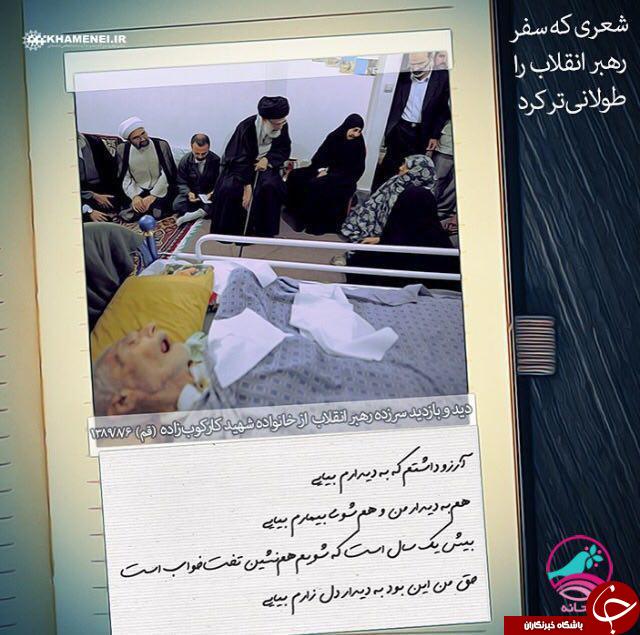 KHAMENEI.IR
شعری که سفر
رهبر انقلاب را
طولانی‌تر کرد
دید و بازدید سرزده رهبر انقلاب از خانواده شهید کارکوب‌زاده (قم) ۱۳۸۹/۷/۶
آرزو داشتم که به دیدارم بیایی
هم به دیدار من و هم شوی بیمارم بیایی
بیش یک سال است که شویم هم‌نشین تخت خواب است
حق من این بود به دیدار دل زارم بیایی
باشگاه خبرنگاران